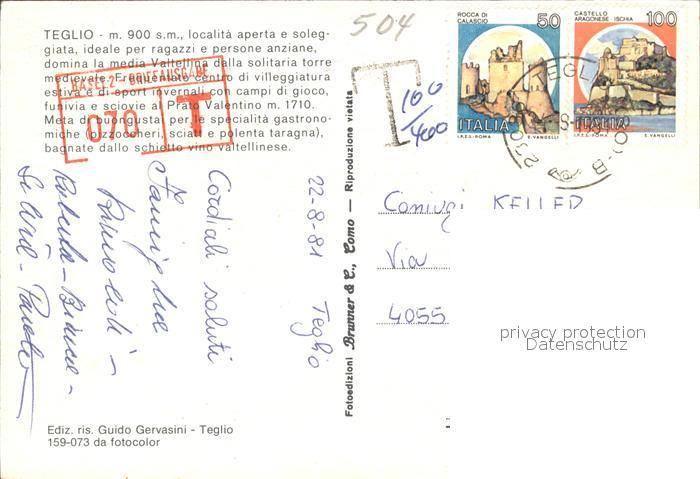 504
TEGLIO - m. 900 s.m., località aperta e soleg-
giata, ideale per ragazzi e persone anziane,
domina la media Valtellina dalla solitaria torre
medievale. Frequentato centro di villeggiatura
estiva e di sport invernali con campi di gioco,
funivia e sciovie al Prato Valentino m. 1710.
Meta di buongustai per le specialità gastrono-
miche (pizzoccheri, sciatt e polenta taragna),
bagnate dallo schietto vino valtellinese.
BASEL 2 - BRIEFAUSGABE
070 T
T
100
/
400
ROCCA DI
CALASCIO
50
ITALIA
I.P.Z.S.-ROMA E. VANGELLI
CASTELLO
ARAGONESE - ISCHIA
100
ITALIA
I.P.Z.S.-ROMA E. VANGELLI
TEGLIO
22-8-81 Teglio
Cordiali saluti
Famiglia
Roberta - Bianca -
Silvia - Paolo
Fotoedizioni Brunner & C., Como — Riproduzione vietata
Coniugi KELLER
Via
4055
privacy protection
Datenschutz
Ediz. ris. Guido Gervasini - Teglio
159-073 da fotocolor